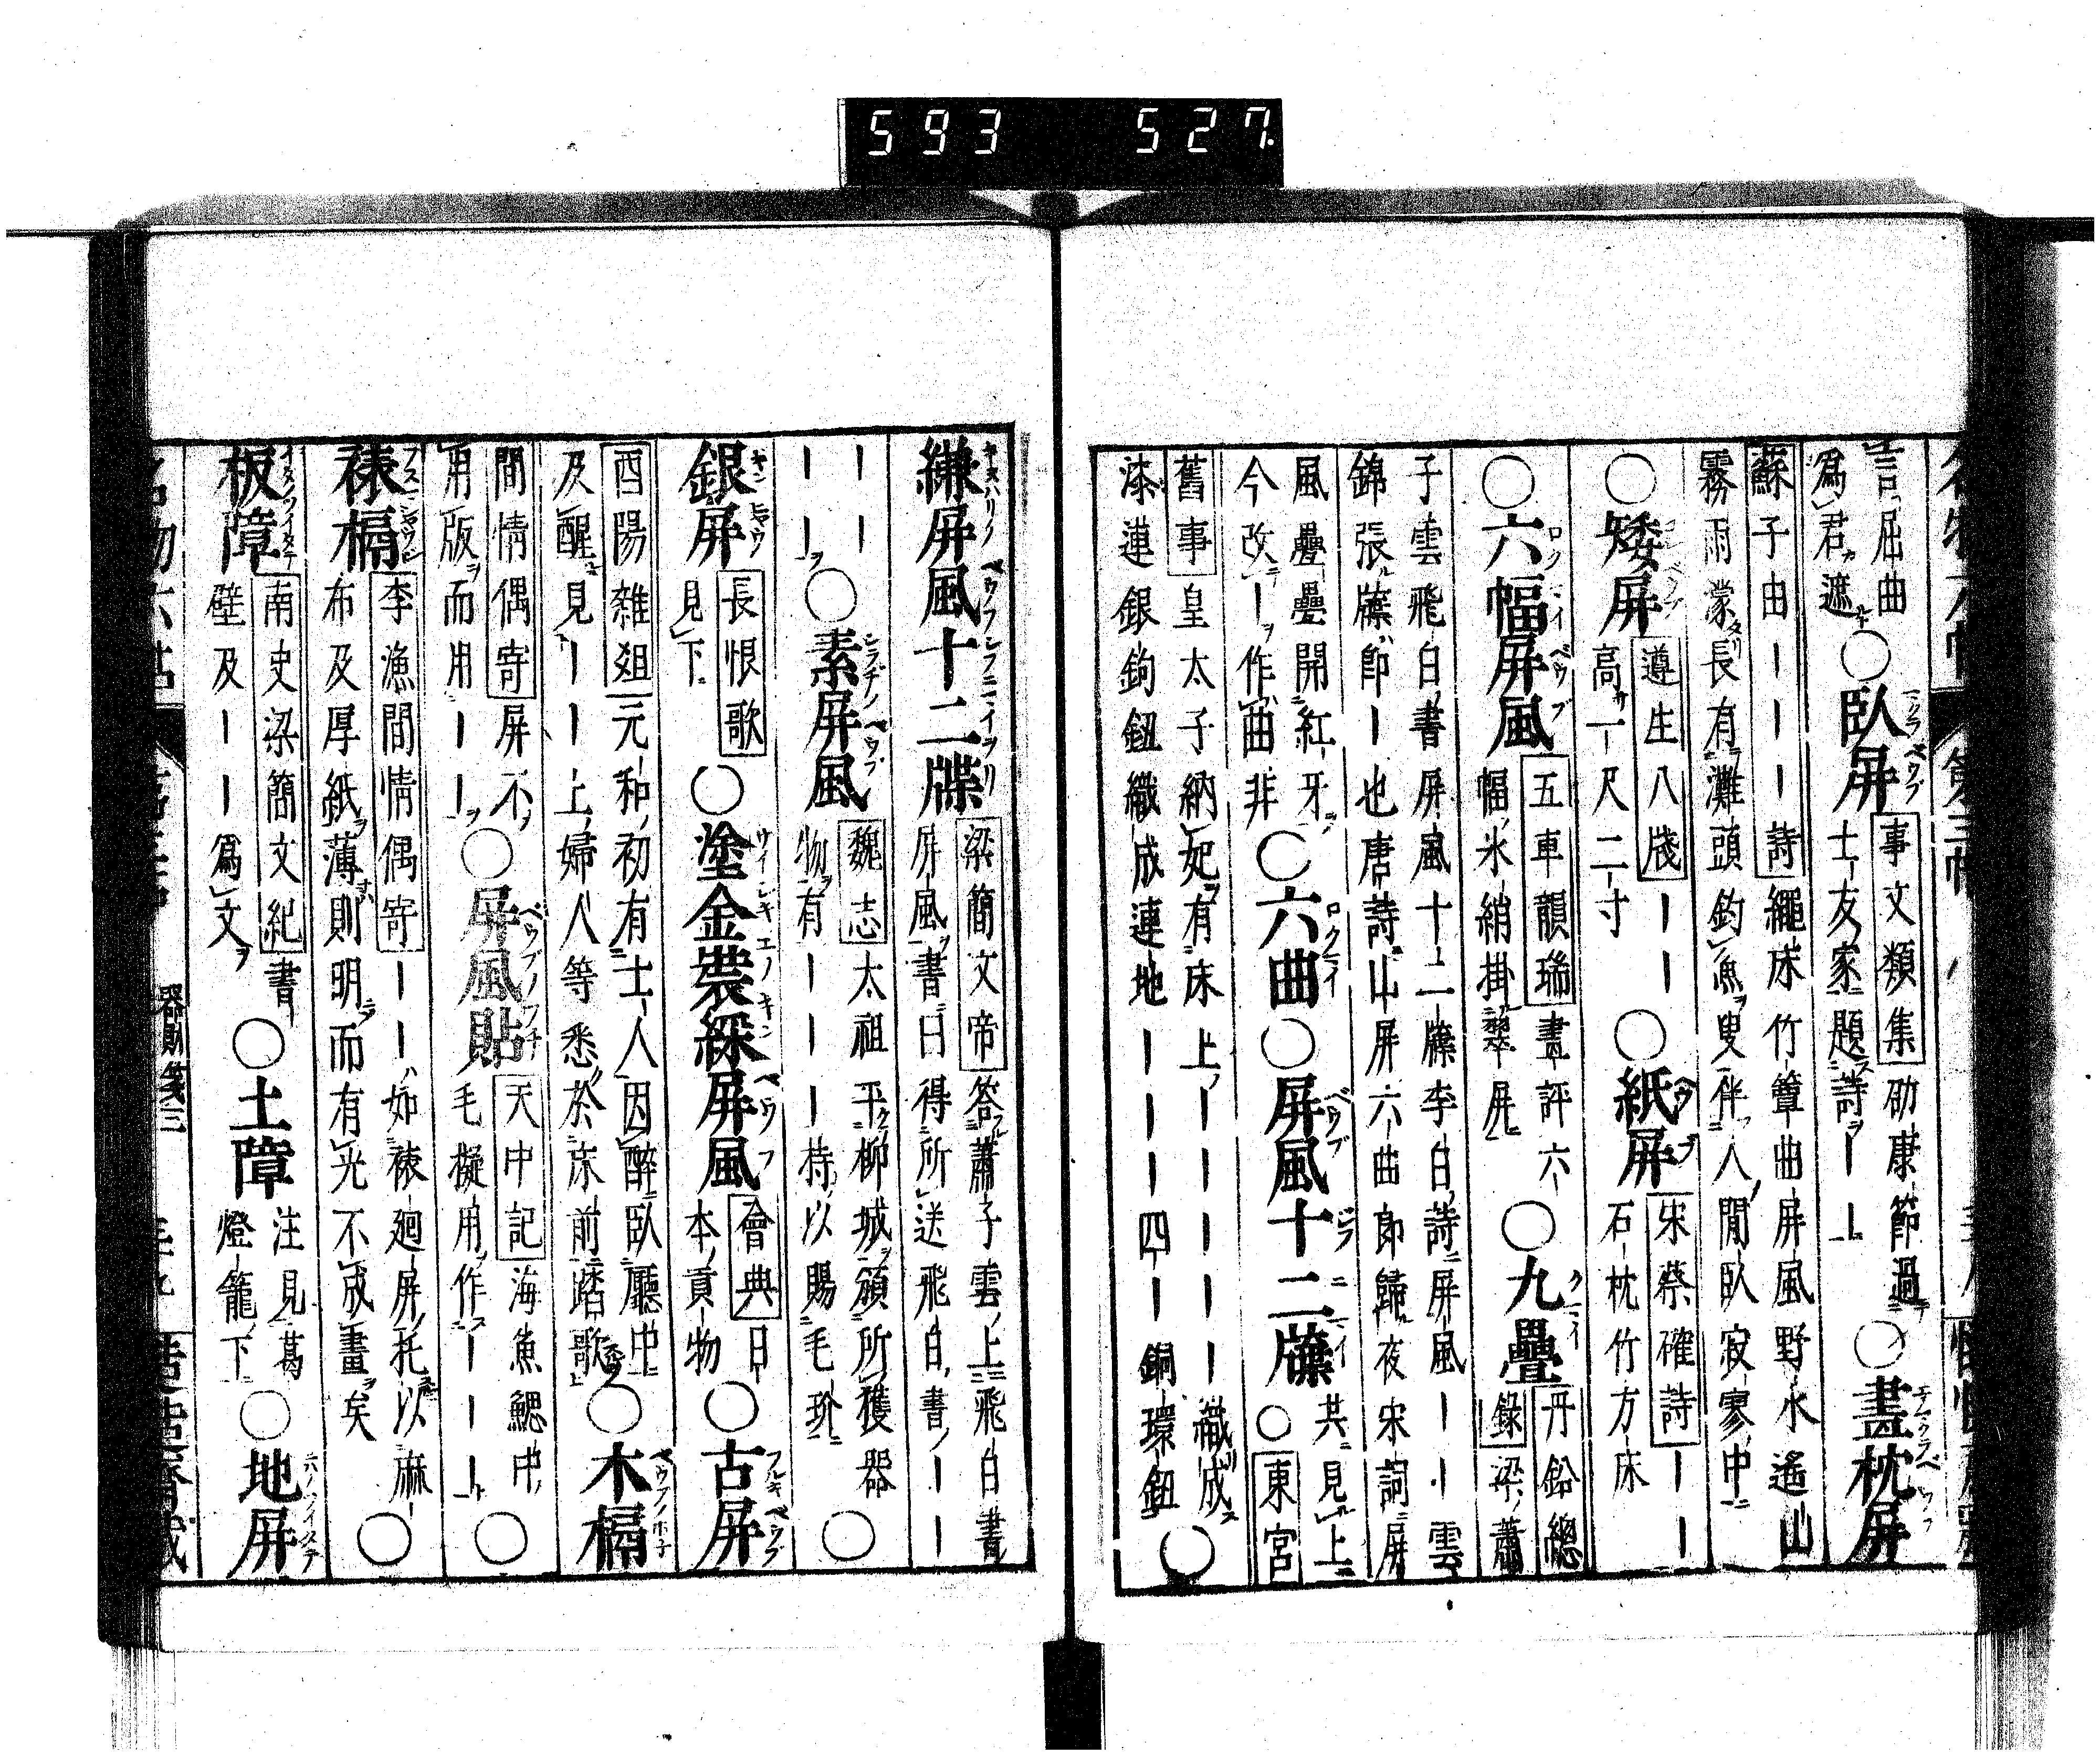 593 527
言屈曲
爲君遮
○臥屏
事文類集邵康節過
士友家題詩ー上
○畫枕屏
蘇子由ーーー詩繩床竹簟曲屏風野水遙山
霧雨濛長有灘頭釣魚叟伴人閒臥寂寥中
○矮屏
遵生八牋ーー
高一尺二寸
○紙屏
宋蔡確詩ーー
石枕竹方床
○六幅屏風
五車韻瑞畫評六
幅氷綃掛翠屏
○九疊
丹鉛總
錄梁蕭
子雲飛白書屏風十二牒李白詩屏風ーー雲
錦張牒節ー也唐詩山屏六曲郎歸夜宋詞屏
風疊疊開紅牙
今改ー作曲非
○六曲○屏風十二牒
共見上
○東宮
舊事皇太子納妃有床上ーーーー織成
漆連銀鉤鈕織成連地ーーーー四ー銅環鈕
○
縑屏風十二牒
梁簡文帝答蕭子雲上飛白書
屏風書曰得所送飛白書ーー
ーー
ーー
○素屏風
魏志太祖平柳城頒所獲器
物有ーーー持以賜毛玠
○
銀屏
長恨歌
見下
○塗金裝綵屏風
會典日
本貢物
○古屏
酉陽雜俎元和初有士人因醉臥廳中
及醒見ーー上婦人等悉於床前踏歌
○木槅
間情偶寄屏不
用版而用ーー
○屏風貼
天中記海魚鰓中
毛擬用作ーーー
○
裱槅
李漁間情偶寄ーー如裱廻屏托以麻
布及厚紙薄則明而有光不成畫矣
○
板障
南史梁簡文紀書
壁及ーー爲文
○土障
注見葛
燈籠下
○地屏
器財箋三